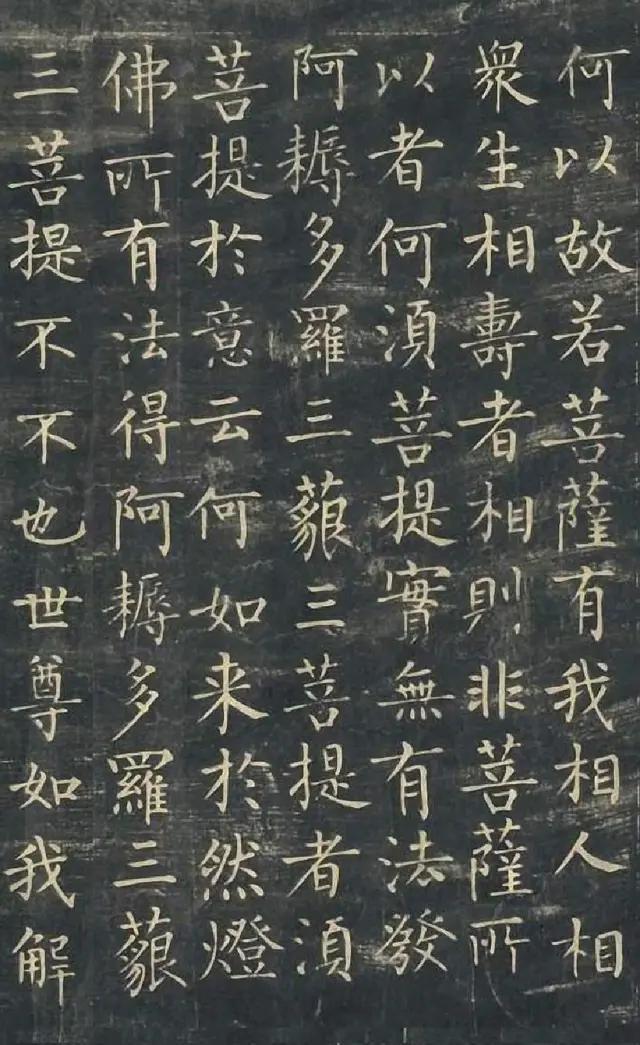 何以故若菩薩有我相人相
衆生相壽者相則非菩薩所
以者何須菩提實無有法發
阿耨多羅三藐三菩提者須
菩提於意云何如来於然燈
佛所有法得阿耨多羅三藐
三菩提不不也世尊如我解